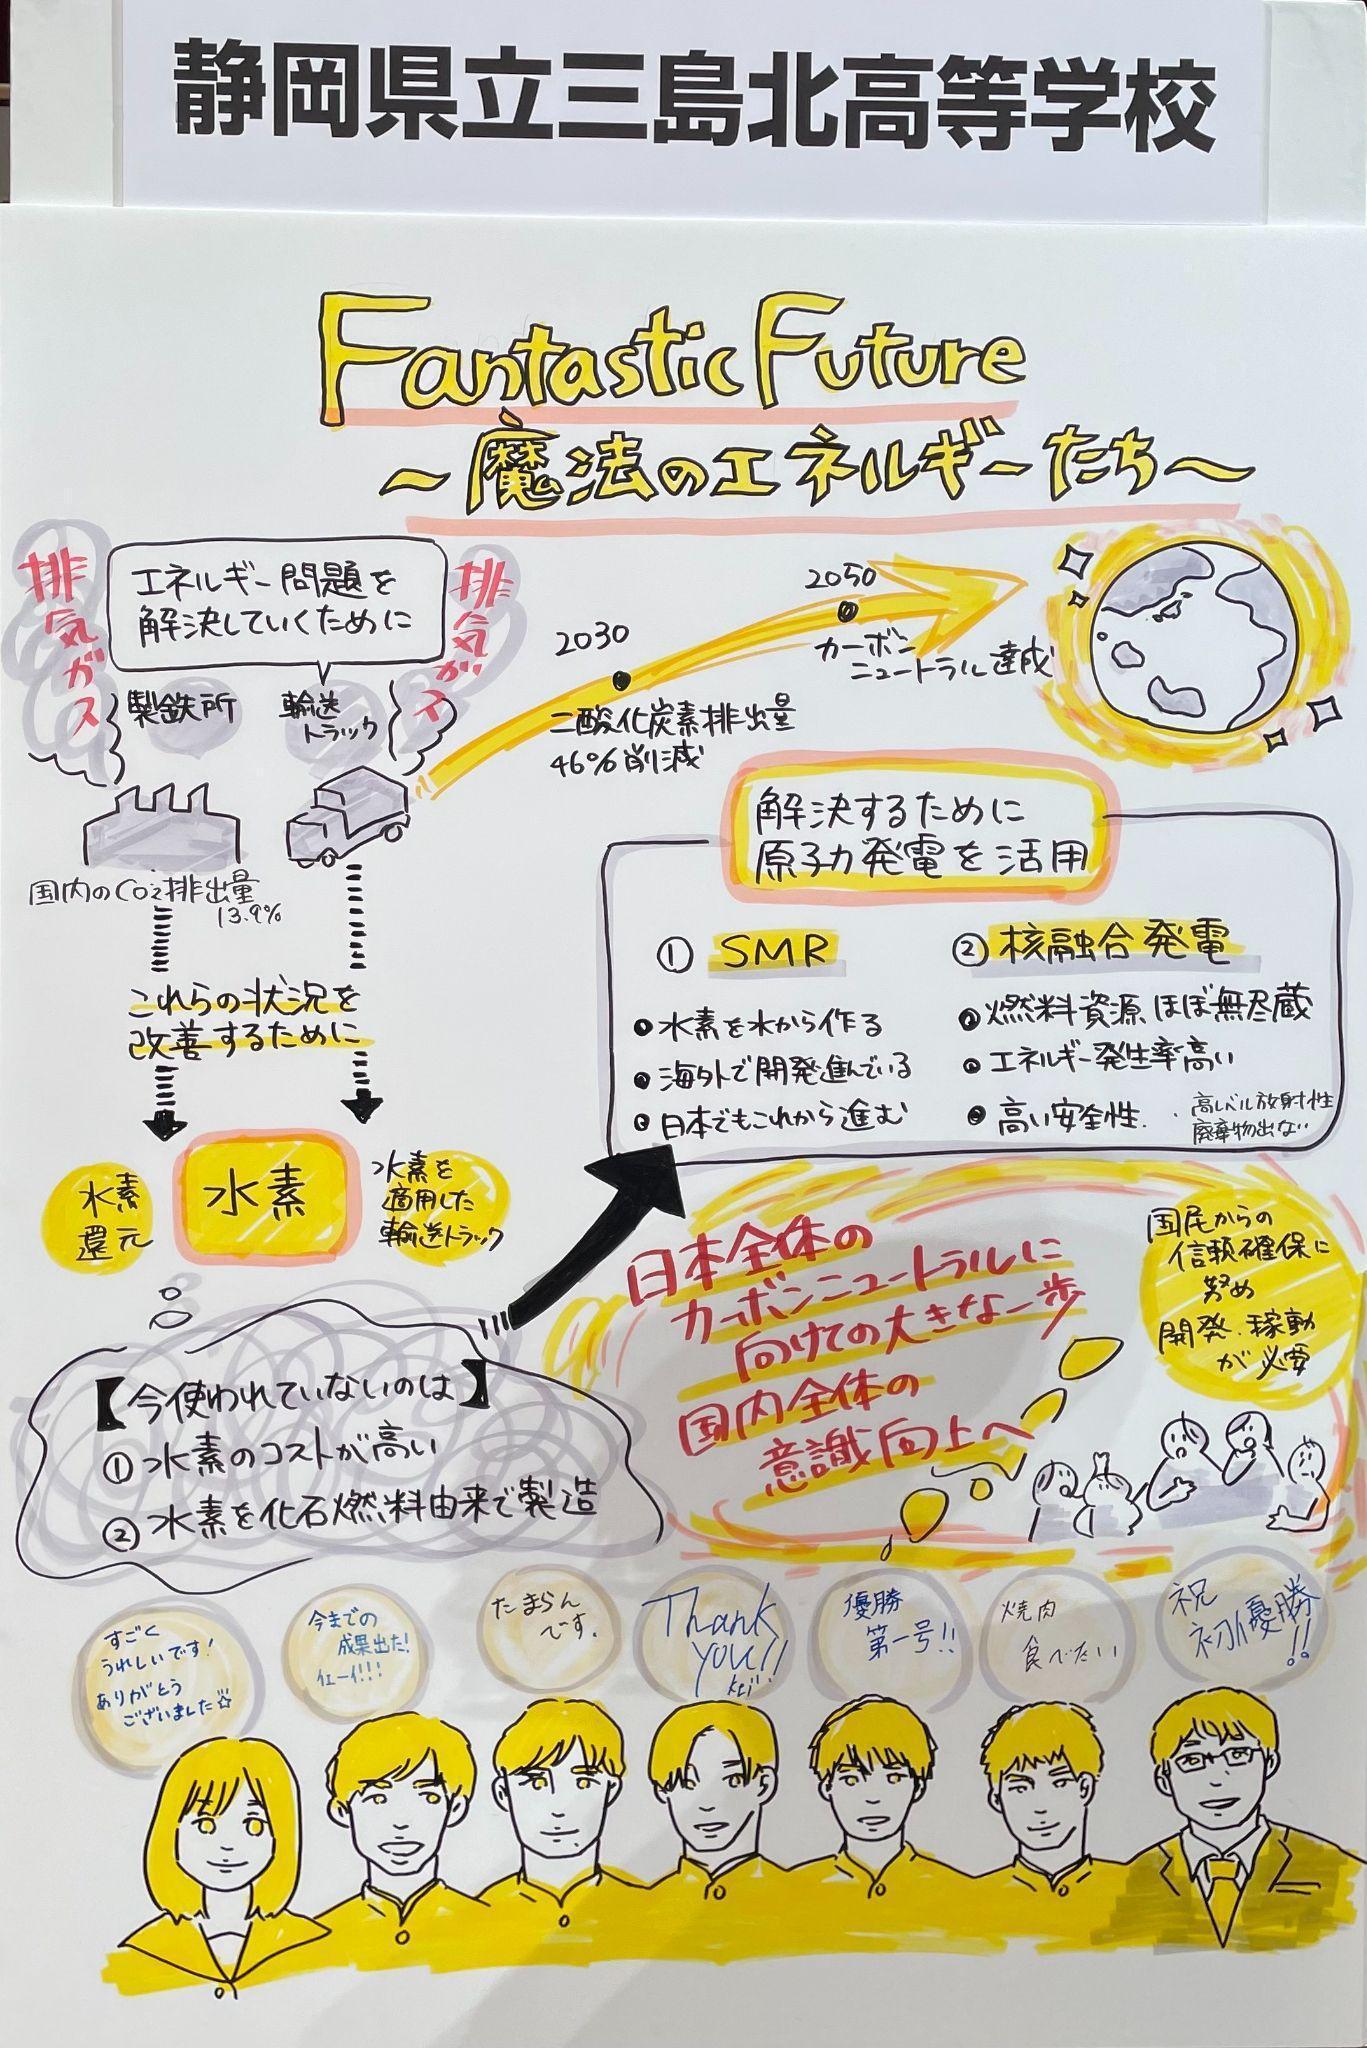 静岡県立三島北高等学校
Fantastic Future
～魔法のエネルギーたち～
排気ガス
エネルギー問題を
解決していくために
排気ガス
製鉄所
輸送
トラック
国内のCO2排出量
13.9%
2030
二酸化炭素排出量
46%削減
2050
カーボン
ニュートラル達成
これらの状況を
改善するために
水素
還元
水素
水素を
適用した
輸送トラック
【今使われていないのは】
① 水素のコストが高い
② 水素を化石燃料由来で製造
解決するために
原子力発電を活用
① SMR
●水素を水から作る
●海外で開発進んでいる
●日本でもこれから進む
② 核融合発電
●燃料資源ほぼ無尽蔵
●エネルギー発生率高い
●高い安全性.
・高レベル放射性
廃棄物出ない
日本全体の
カーボンニュートラルに
向けての大きな一歩
国内全体の
意識向上へ
国民からの
信頼確保に
努め
開発・稼動
が必要
すごく
うれしいです!
ありがとう
ございました☆
今までの
成果出た!
イェーイ!!!
たまらん
です.
Thank
you!!
kei
優勝
第一号!!
焼肉
食べたい
祝
初優勝!!